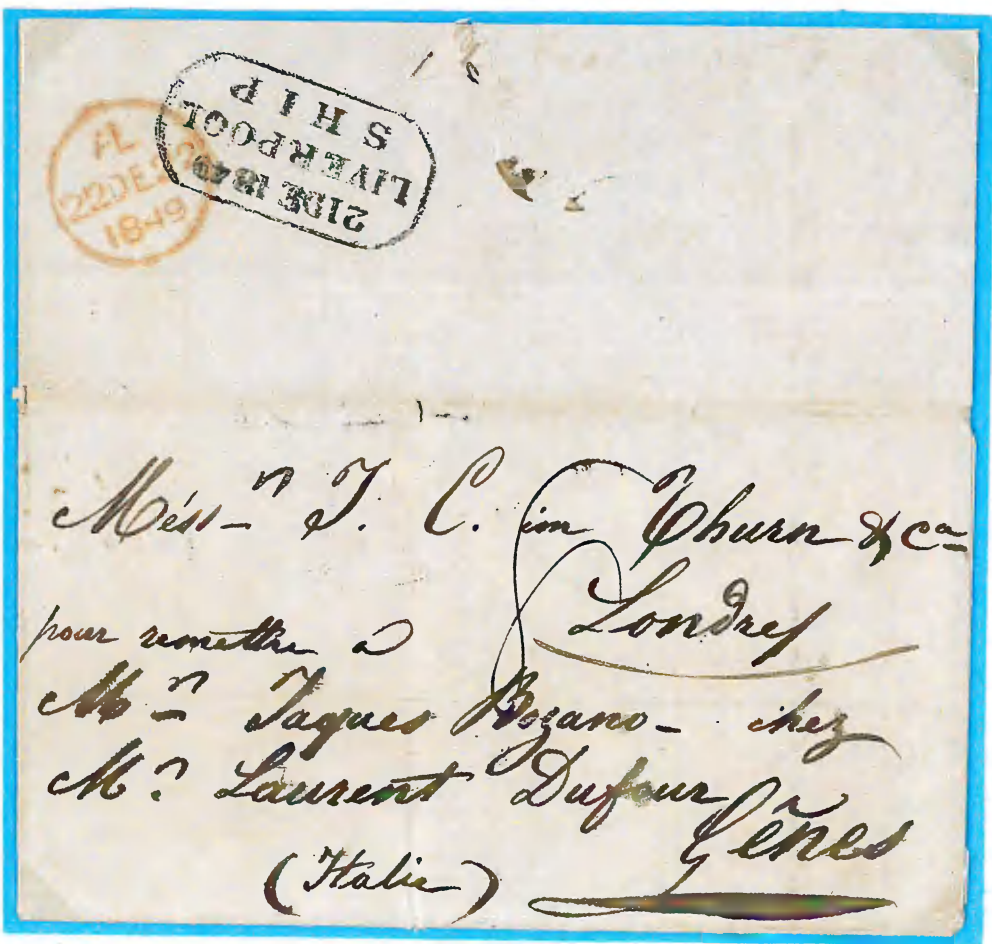 FL
22DE22
1849
21DE1849
LIVERPOOL
SHIP
Mess-rs J. C. im Thurn & Ca
Londres
pour remettre a
Mr Jaques Bozano - chez
Mr Laurent Dufour
Gênes
(Italie)